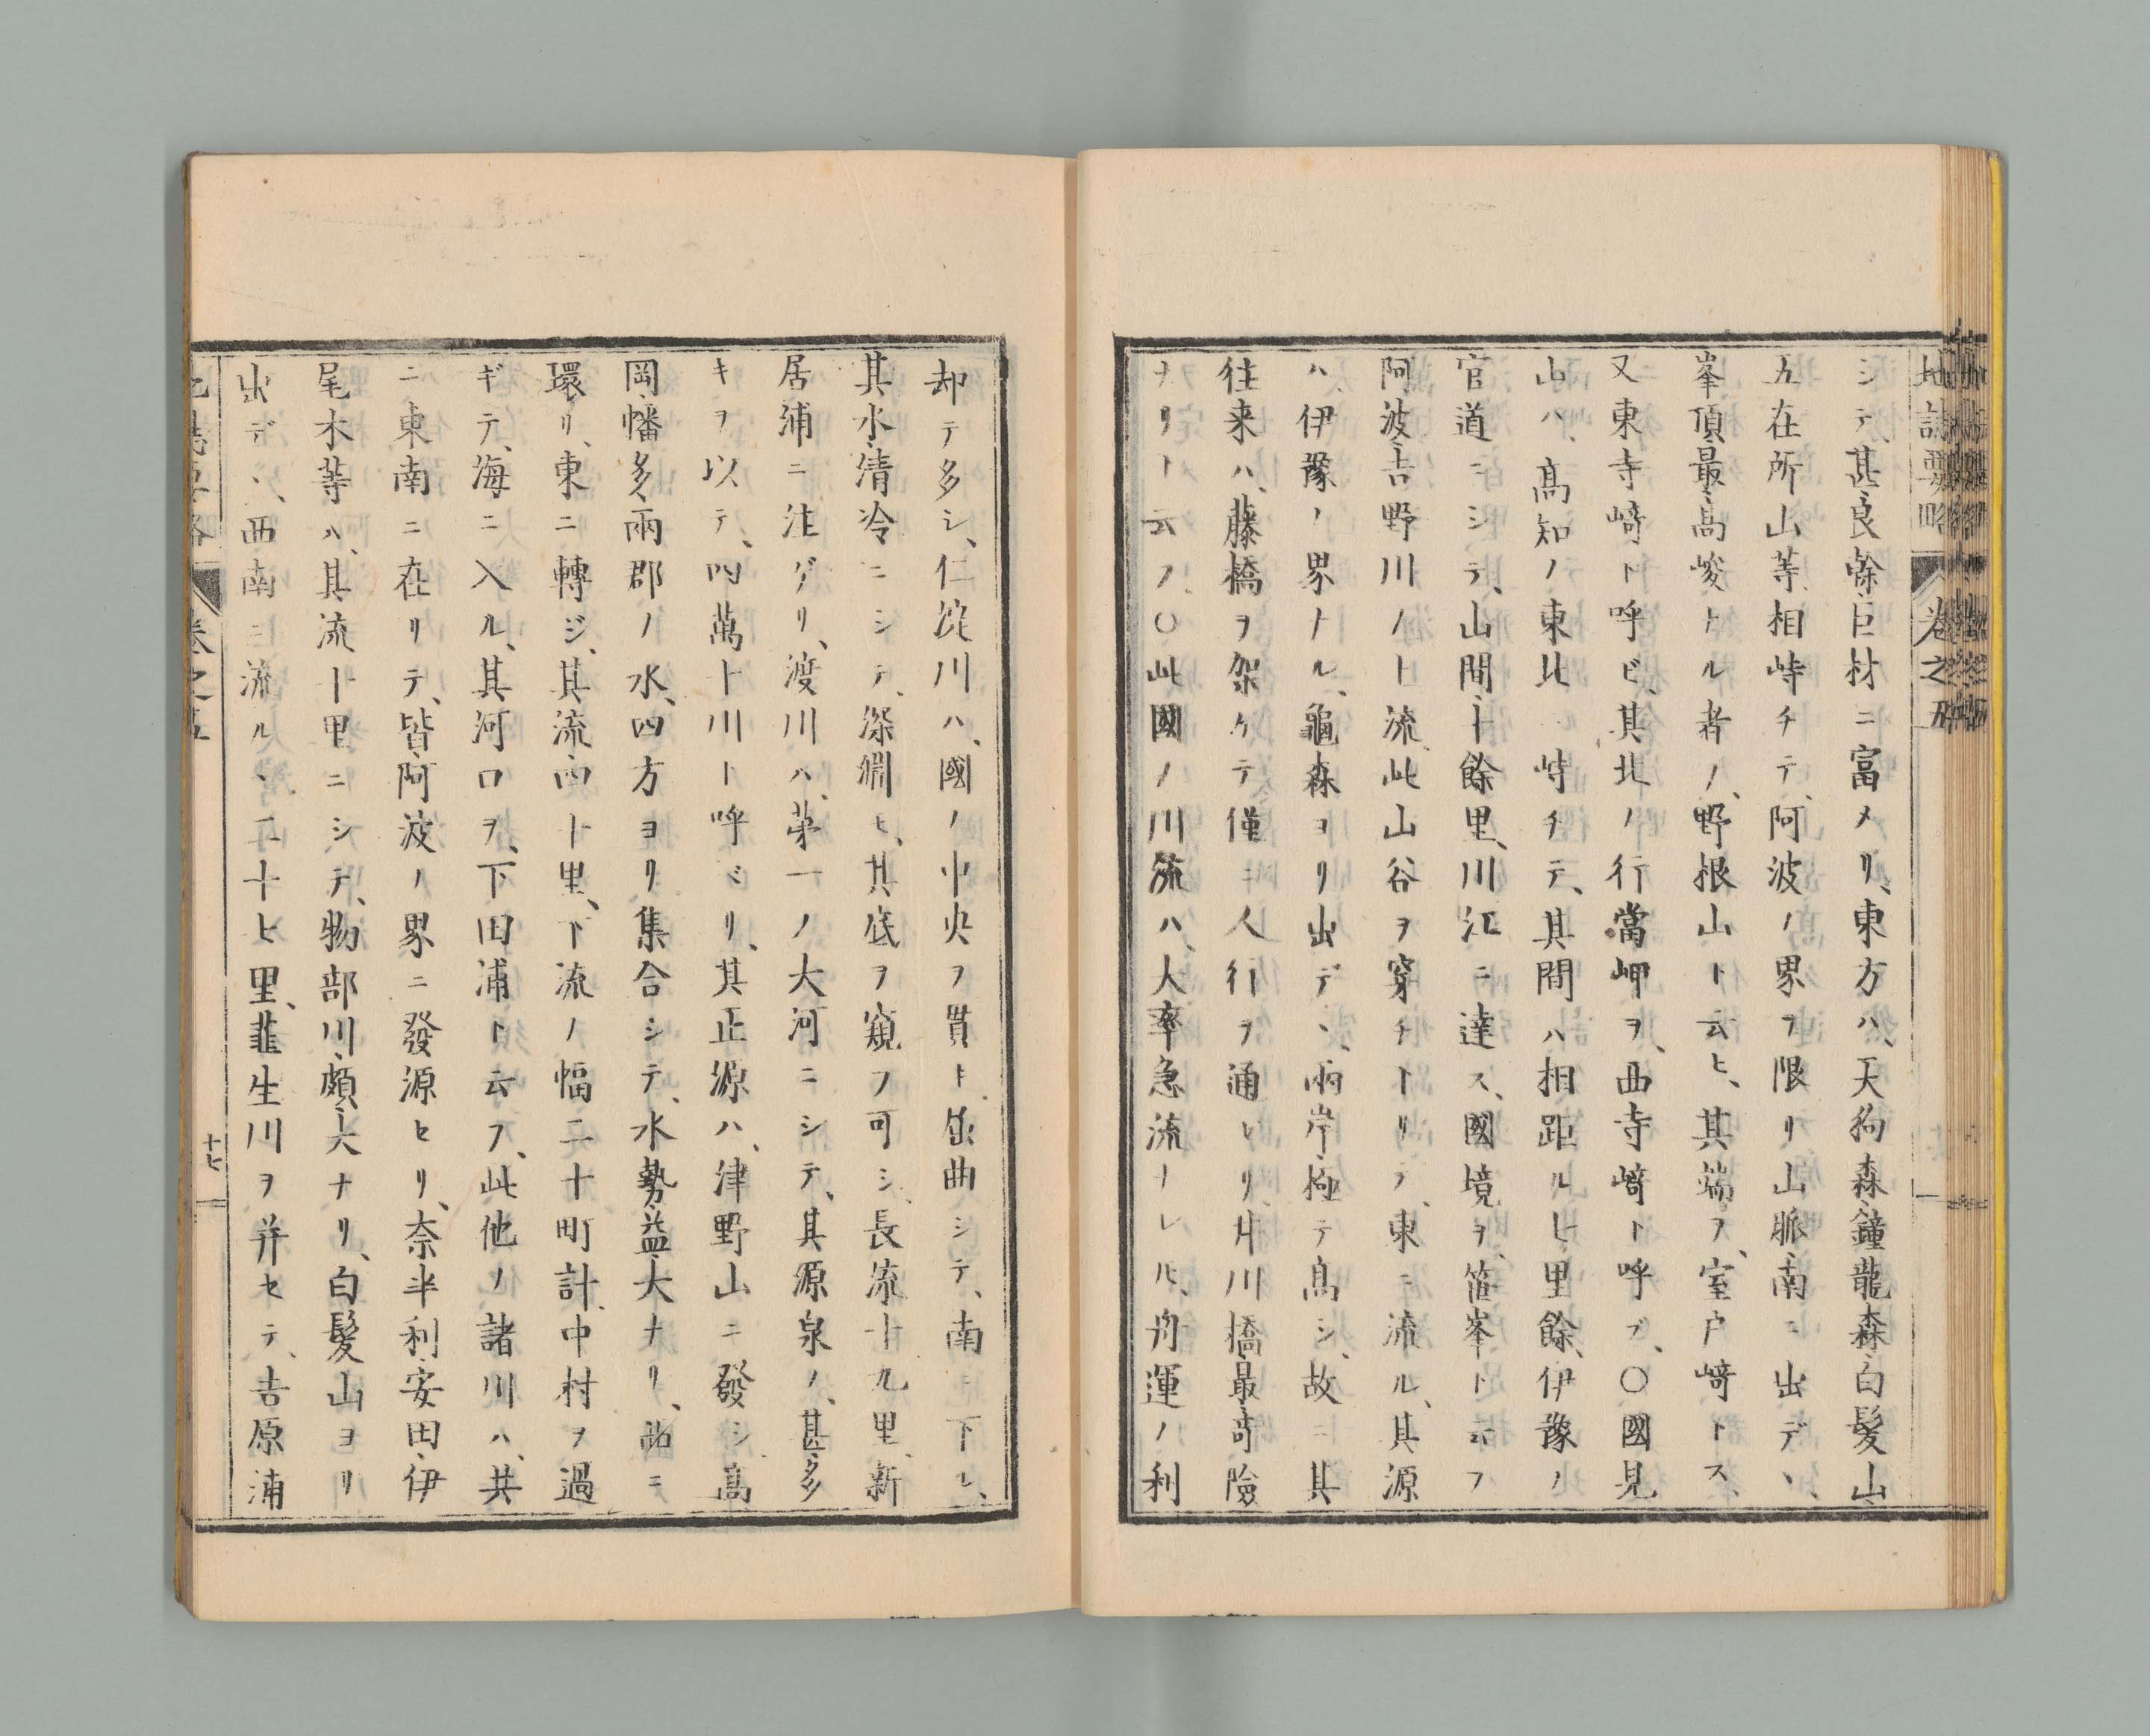 地誌要略 卷之五
シテ、甚良 巨材ニ富メリ、東方ハ、天狗森、鐘龍森、白髮山、
五在所山等、相峙チテ、阿波ノ界ヲ限リ、山脈、南ニ出デヽ、
峯頂、最高峻ナル者ノ、野根山ト云ヒ、其端ヲ、室戸﨑トス、
又東寺﨑ト呼ビ、其北ノ行當岬ヲ、西寺﨑ト呼ブ、〇國見
山ハ、高知ノ東北ニ峙チテ、其間ハ相距ル七里餘、伊豫ノ
官道ニシテ、山間十餘里、川江ニ達ス、國境ヲ、笹峯ト云フ、
阿波、吉野川ノ上流、此山谷ヲ穿チトリテ、東ニ流ル、其源
ハ、伊豫ノ界ナル、龜森ヨリ出デヽ、兩岸極テ高シ、故ニ其
往来ハ、藤橋ヲ架ケテ僅ニ人行ヲ通ゼリ、片川橋、最奇險
ナリト云フ、〇此國ノ川流ハ、大率急流ナレバ、舟運ノ利
却テ多シ、仁淀川ハ、國ノ中央ヲ貫ト、屈曲シテ、南ニ下レ、
其水、清冷ニシテ、深淵ヒ、其底ヲ窺フ可シ、長流十九里、新
居浦ニ注ゲリ、渡川ハ、第一ノ大河ニシテ、其源泉ノ、甚多
キヲ以テ、四萬十川ト呼ベリ、其正源ハ、津野山ニ發シ、高
岡、幡多、兩郡ノ水、四方ヨリ集合シテ、水勢、益大ナリ、 ニ
環リ、東ニ轉ジ、其流四十里、下流ノ幅二十町計、中村ヲ過
ギテ、海ニ入ル、其河口ヲ、下田浦ト云フ、此他ノ諸川ハ、共
ニ東南ニ在リテ、皆、阿波ノ界ニ發源セリ、奈半利、安田、伊
尾木等ハ、其流十里ニシテ、物部川、頗大ナリ、白髮山ヨリ
出デヽ、西南ニ流ルヽ、二十七里、韮生川ヲ幷セテ、吉原浦
地誌要略 卷之五 十七